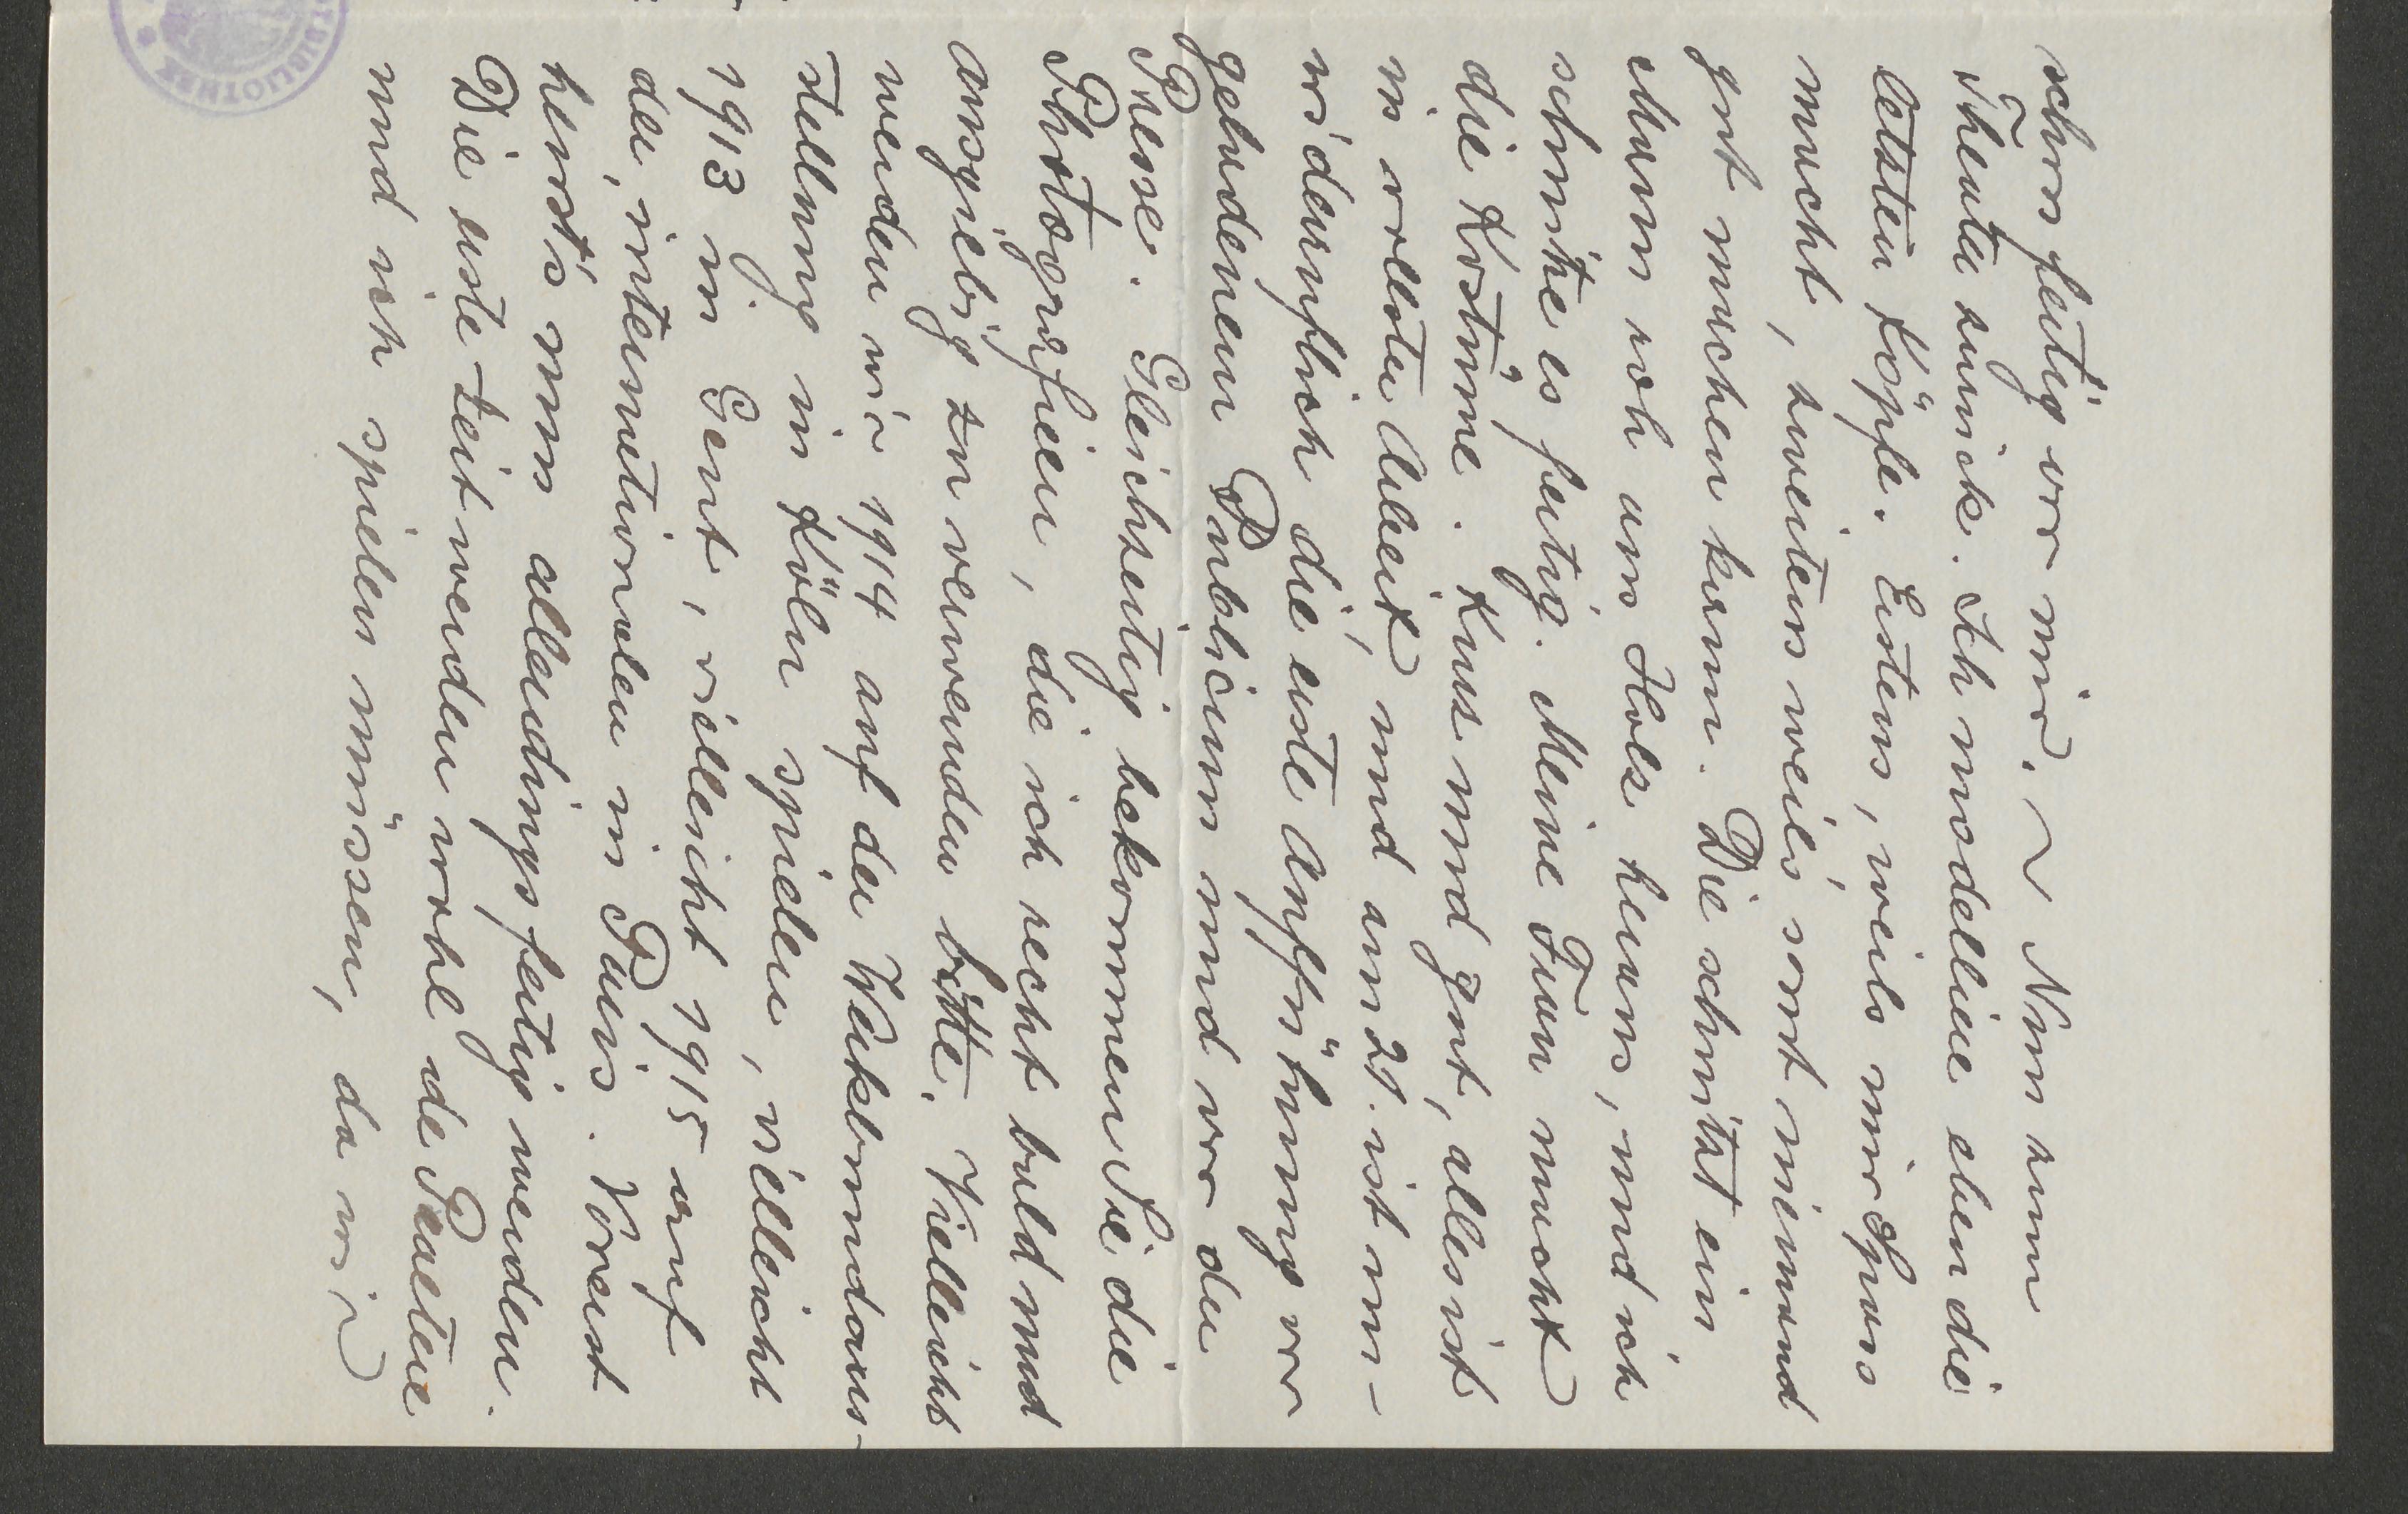 schon fertig vor mir. Nun zum
Theater zurück. Ich modelliere eben die
letzten Köpfe. Erstens, weils mir Spass
macht, zweitens weils sonst niemand
gut machen kann. Die schnitzt ein
Mann roh aus Holz heraus, und ich
schnitze es fertig. Meine Frau macht
die Kostüme. Kurz und gut, alles ist
in vollster Arbeit, und am 21. ist un-
widerruflich die erste Aufführung vor
geladenem Publicum und vor der
Presse. Gleichzeitig bekommen Sie die
Photografien, die ich recht bald und
ausgiebig zu verwenden bitte. Vielleicht
werden wir 1914 auf der Werkbundaus-
stellung in Köln spielen, vielleicht
1913 in Gent, vielleicht 1915 auf
der internationalen in Paris. Vorerst
heissts nun allerdings fertig werden.
Die erste Zeit werden wohl de Praetere
und ich spielen müssen, da wir
BIBLIOTHEK